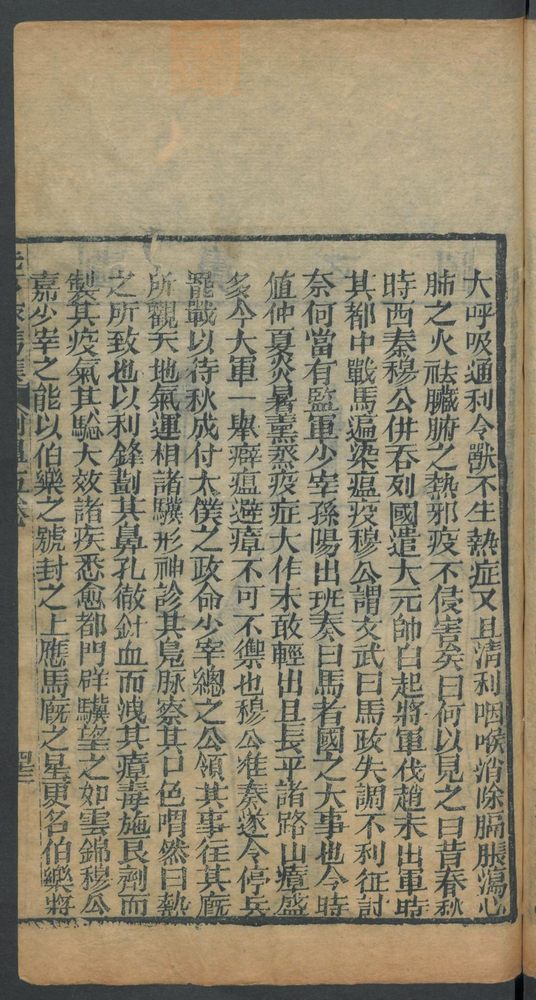 大呼吸通利令獸不生熱症又且清利咽喉消除膈脹瀉心
肺之火祛臟腑之熱邪疫不侵害矣曰何以見之曰昔春秋
時西秦穆公併吞列國遣大元帥白起將軍伐趙未出軍時
其都中戰馬遍染瘟疫穆公謂文武曰馬政失調不利征討
奈何當有監軍少宰孫陽出班奏曰馬者國之大事也今時
值仲夏炎暑薰蒸疫症大作未敢輕出且長平諸路山瘴盛
多今大軍一舉癖瘟避瘴不可不禦也穆公准奏遂令停兵
罷戰以待秋成付太僕之政命少宰總之公領其事往其廐
所觀天地氣運相諸驥形神診其鳬脉察其口色喟然曰熱
之所致也以利鋒劃其鼻孔徹針血而洩其瘴毒施良劑而
製其疫氣其騐大效諸疾悉愈都門群驥望之如雲錦穆公
嘉少宰之能以伯樂之號封之上應馬廐之星更名伯樂將